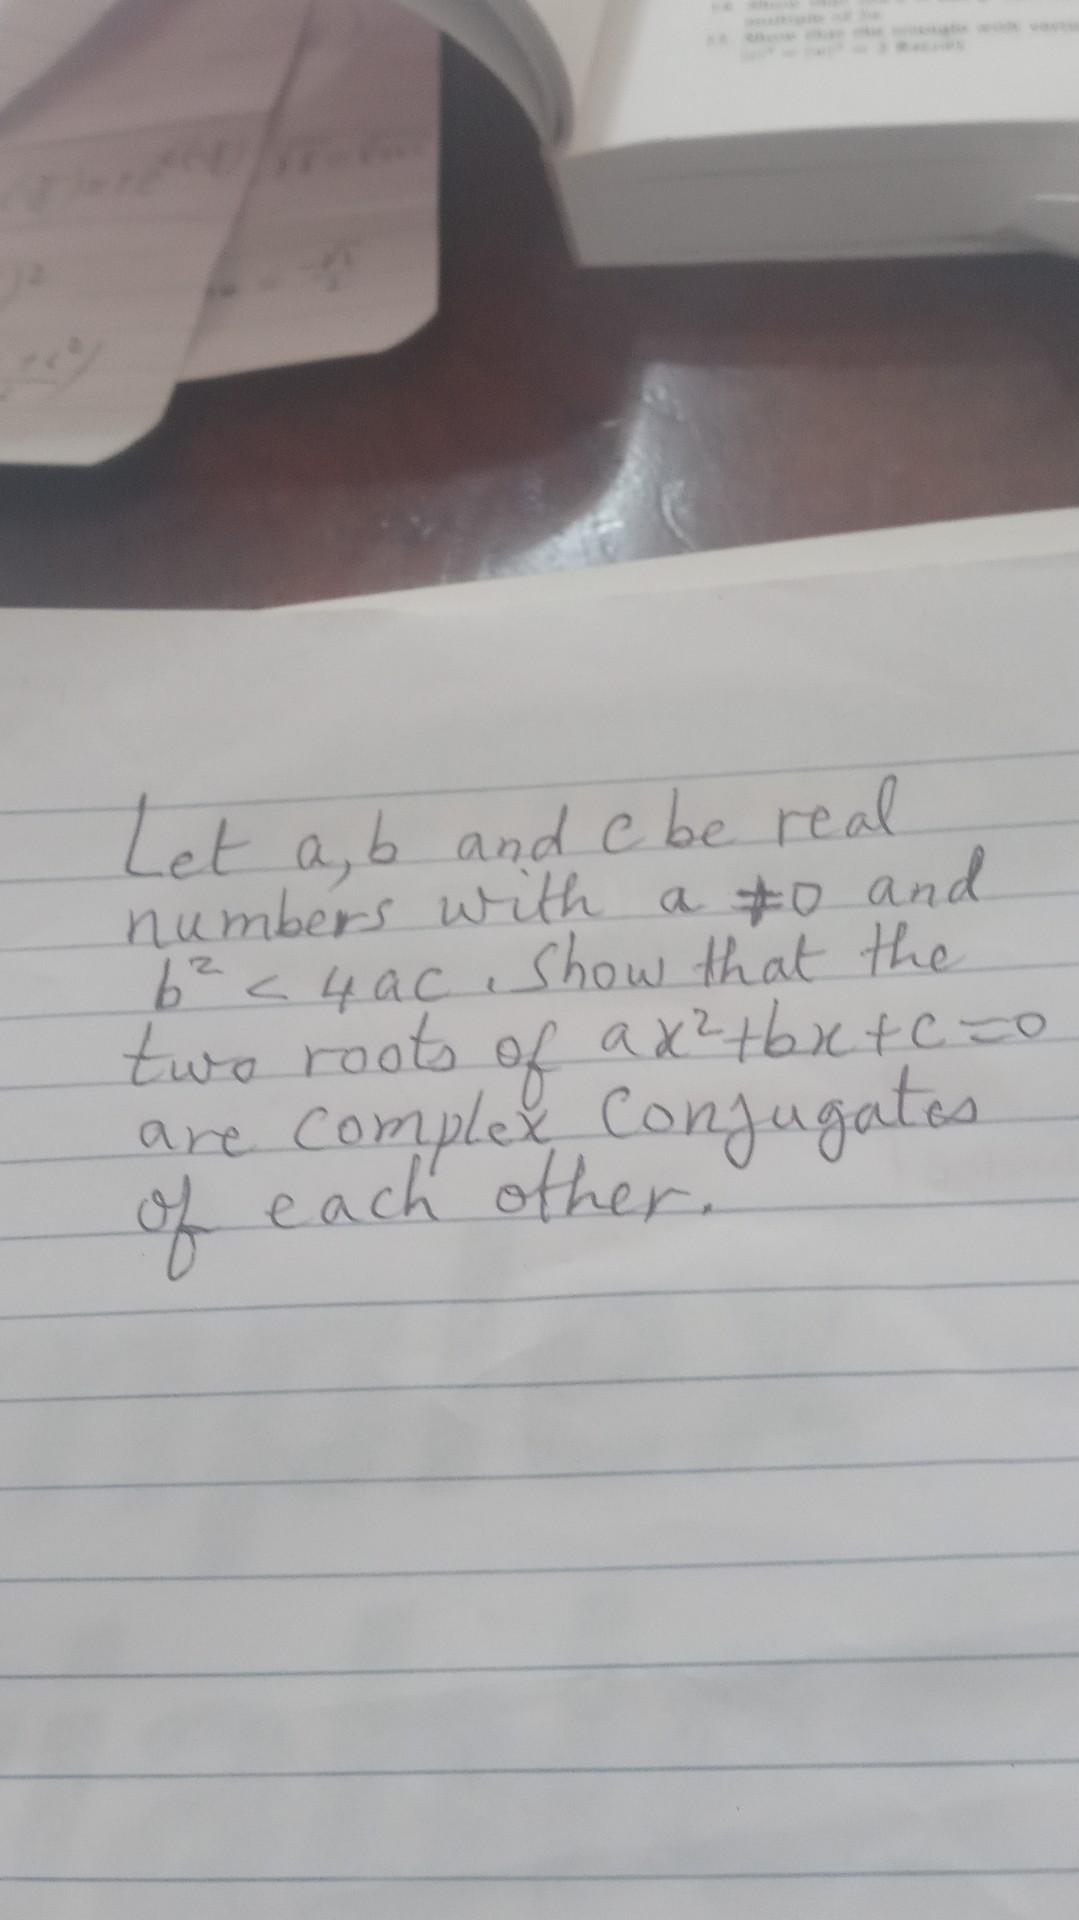 Show that the triangle with
Let a, b and c be real
numbers with a ≠ 0 and
b² < 4ac. Show that the
two roots of ax²+bx+c=0
are complex Conjugates
of each other.